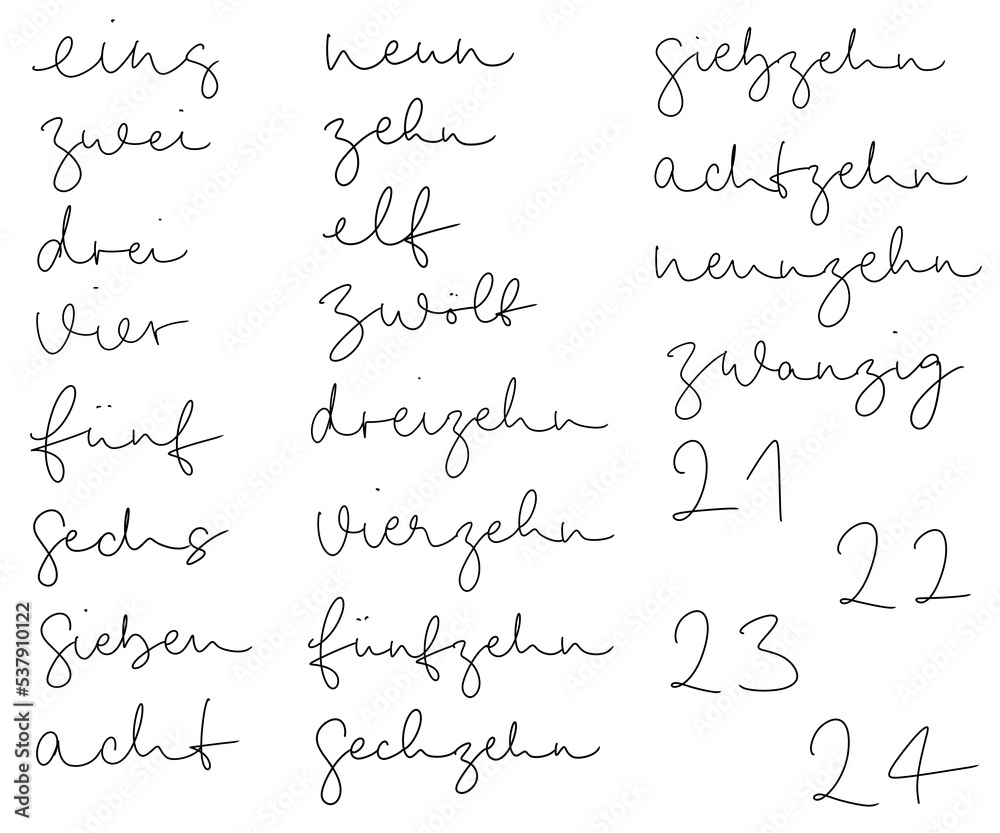 eins
zwei
drei
vier
fünf
sechs
sieben
acht
neun
zehn
elf
zwölf
dreizehn
vierzehn
fünfzehn
sechzehn
siebzehn
achtzehn
neunzehn
zwanzig
21
22
23
24
Adobe Stock | #537910122